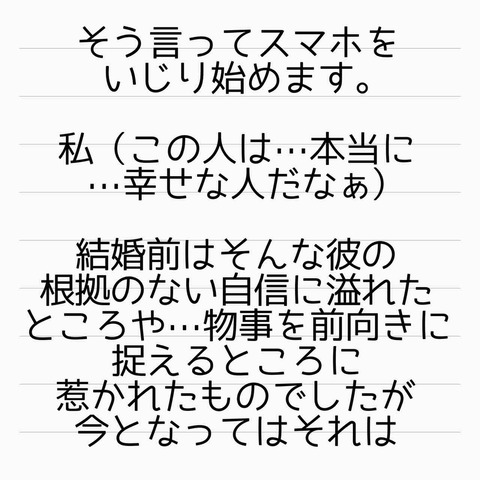 そう言ってスマホを
いじり始めます。
私（この人は…本当に
…幸せな人だなぁ）
結婚前はそんな彼の
根拠のない自信に溢れた
ところや…物事を前向きに
捉えるところに
惹かれたものでしたが
今となってはそれは